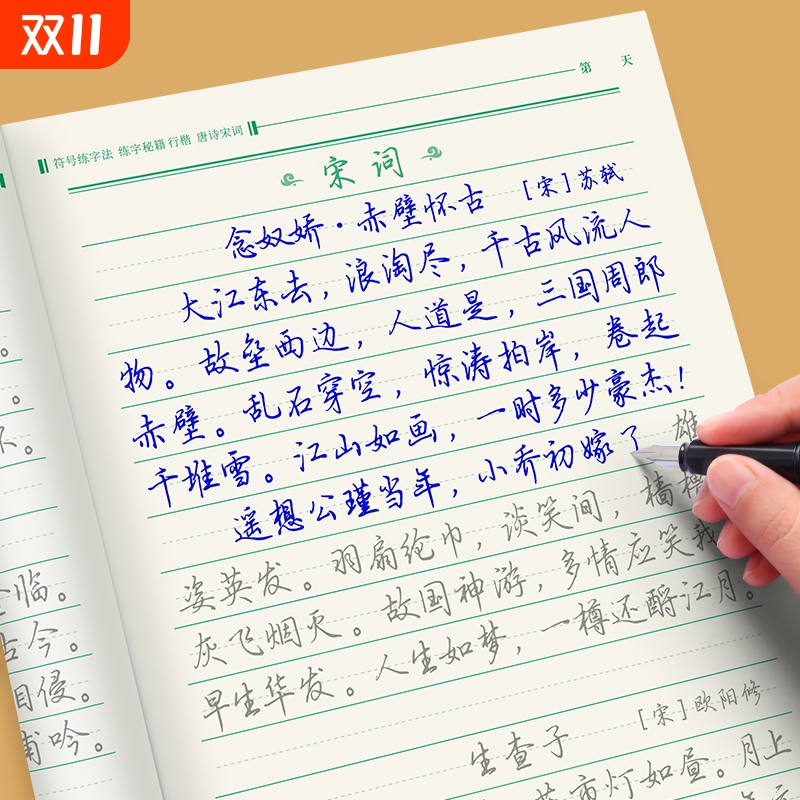 双11
第 天
符号练字法 练字秘籍 行楷 唐诗宋词
宋词
念奴娇·赤壁怀古 [宋]苏轼
大江东去，浪淘尽，千古风流人
物。故垒西边，人道是，三国周郎
赤壁。乱石穿空，惊涛拍岸，卷起
千堆雪。江山如画，一时多少豪杰！
遥想公瑾当年，小乔初嫁了 雄
姿英发。羽扇纶巾，谈笑间，樯橹
灰飞烟灭。故国神游，多情应笑我
早生华发。人生如梦，一樽还酹江月。
生查子 [宋]欧阳修
市灯如昼。月上
临。
古今。
相侵。
甫吟。